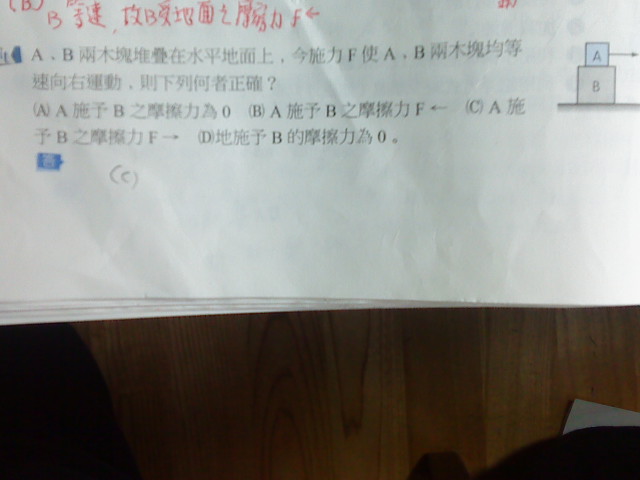 (B)
B 等速，故B受地面之摩擦力 F←
A、B 兩木塊堆疊在水平地面上，今施力F使A、B兩木塊均等
速向右運動，則下列何者正確？
(A) A 施予 B 之摩擦力為 0 (B) A 施予 B 之摩擦力 F ← (C) A 施
予 B 之摩擦力 F → (D)地施予 B 的摩擦力為 0。
答
(C)
A
B